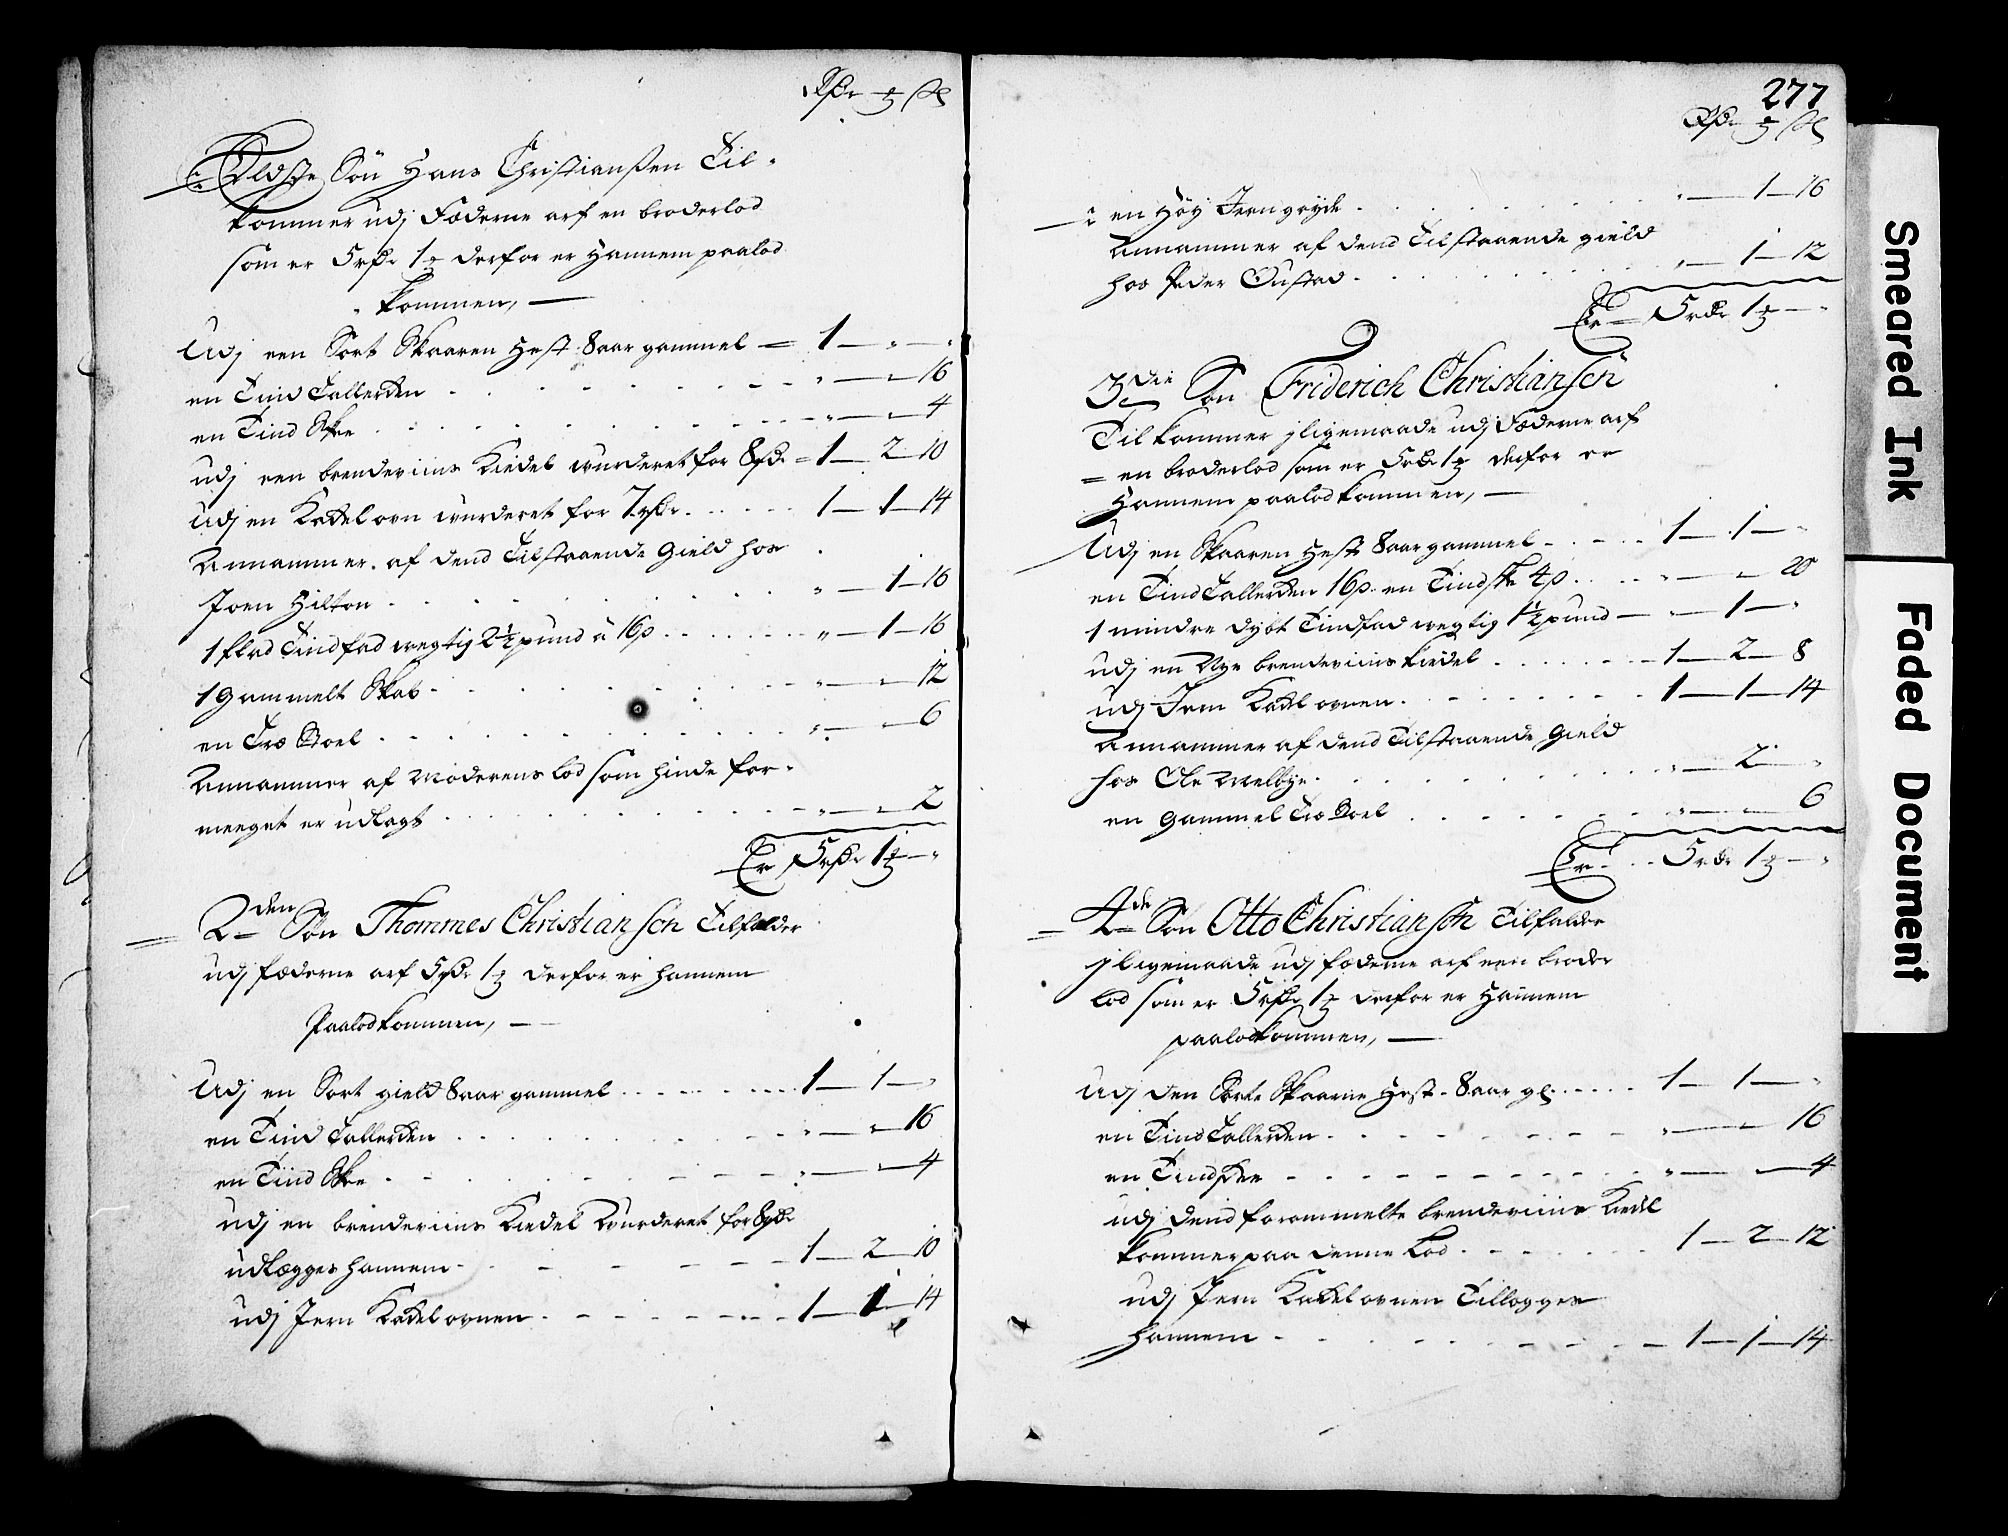 Rdr ʒ sk
Eldste Søn Hans Christianßen Til-
kommer udj Fæderne arf en broderlod
som er 5rdr 1ʒ derfor er Hannem paalod
kommen, —
Udj een Sort Skaaren Hest 8aar gammel = 1 — " — "
en Tind Tallerken . . . " — " — 16
en Tind Skee . . . " — " — 4
udj een brendeviins Kiedel wurderet for 8rdr = 1 — 2 — 10
Udj en Kakelovn wurderet for 7rdr . . . 1 — 1 — 14
Annammer af dend Tilstaaende Gield hos
Joen Hilton . . . " — 1 — 16
1 flad Tindfad wegtig 2½ pund à 16s . . . " — 1 — 16
1 Gammelt Skab . . . " — " — 12
en Træ Stoel . . . " — " — 6
Annammer af Moderens lod som hinde for-
meeget er udlagt . . . " — " — 2
Er 5rdr 1ʒ — "
2den Søn Thommes Christiansen Tilfalder
udj fæderne arf 5rdr 1ʒ derfor er hannem
Paalodkommen, —
Udj en Sort gield 8aar gammel . . . 1 — 1 — "
en Tind Tallerken . . . " — " — 16
en Tiind Skee . . . " — " — 4
udj en brendeviins Kiedel Wurderet for 8rdr
udlægges hannem . . . 1 — 2 — 10
udj Jern Kakelovnen . . . 1 — 1 — 14
277
Rdr ʒ sk
1 en Høy Jerngryde . . . " — 1 — 16
Annammer af dend Tilstaaende gield
hos Peder Oustad . . . " — 1 — 12
Er 5rdr 1ʒ — "
3die Søn Friderich Christiansen
Tilkommer jligemaade udj Fæderne arf
en broderlod som er 5rdr 1ʒ derfor er
Hannem paalodkommen, —
Udj en Skaaren Hest 8aar gammel . . . 1 — 1 — "
en Tind Tallerken 16s. en Tindske 4s . . . " — " — 20
1 mindre dybt Tindfad wegtig 1½ pund — " — 1 — "
udj en Nye brendeviins kiedel . . . 1 — 2 — 8
udj Jern Kakelovnen . . . 1 — 1 — 14
Annammer af dend Tilstaaende Gield
hos Ole Melbye . . . " — 2 — "
en gammel Træ Stoel . . . " — " — 6
Er . . 5rdr 1ʒ — "
4de Søn Otto Christiansen Tilfalder
jligemaade udj fæderne arf een broder
lod som er 5rdr 1ʒ derfor er Hannem
paalodkommen, —
Udj den Sorte Skaarne Hest 8aar gl. . . . 1 — 1 — "
en Tind Tallerken . . . " — " — 16
en Tindskee . . . " — " — 4
udj dend forommelte brendeviins Kiedl
kommer paa denne Lod . . . 1 — 2 — 12
udj Jern Kakelovnen Tillegges
hannem . . . 1 — 1 — 14
Smeared Ink
Faded Document